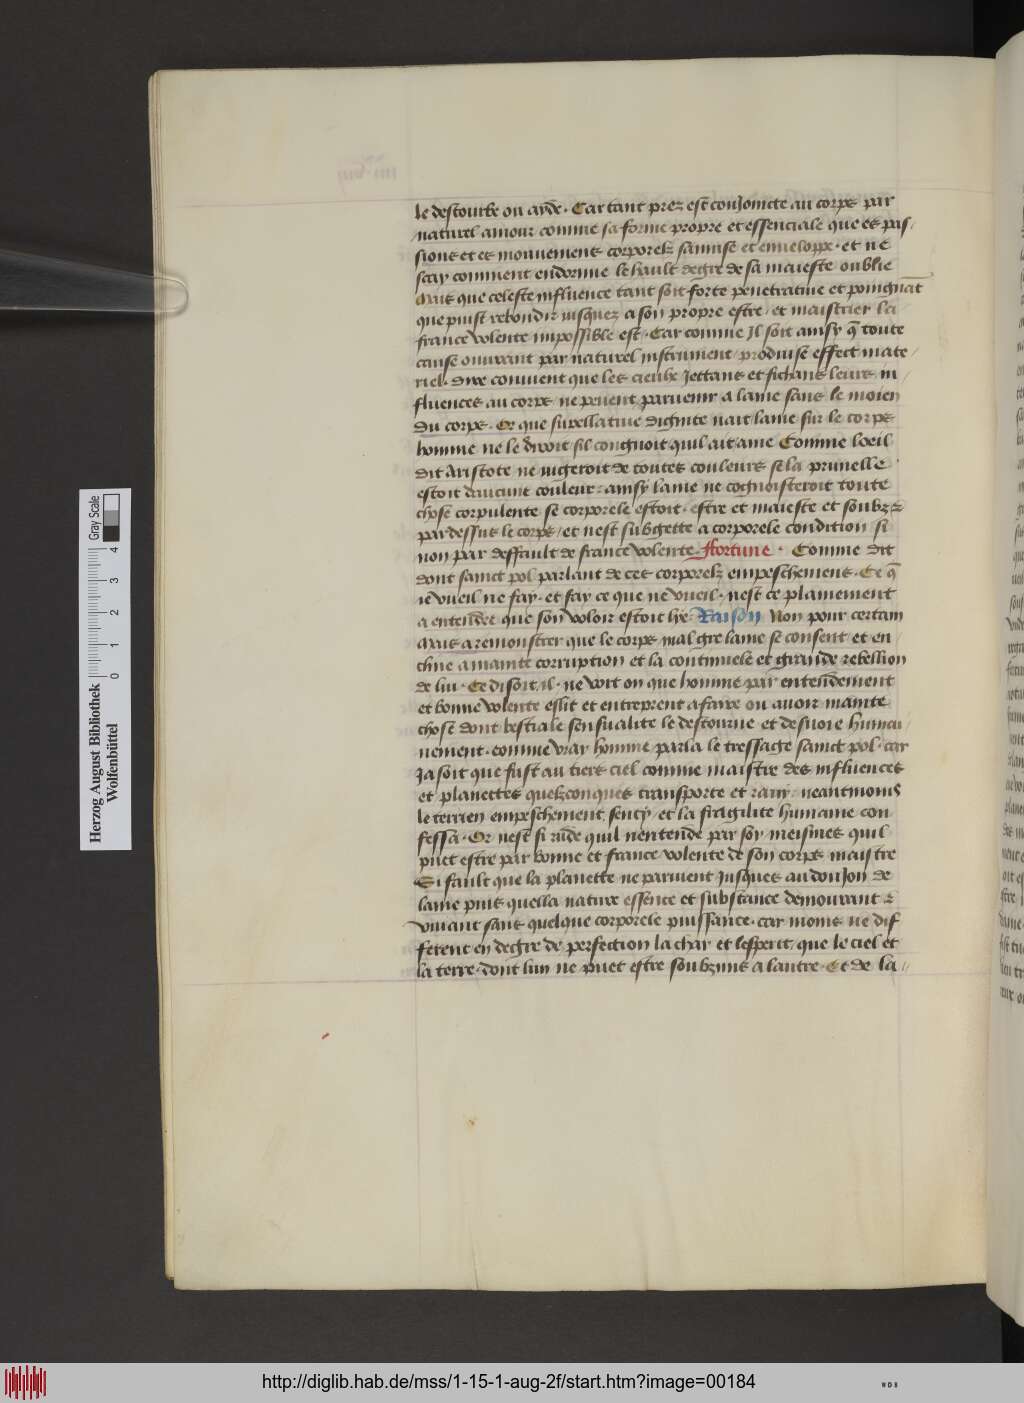 le destourbe ou ayde. Car tant prez est conjoincte au corps par
naturel amour comme sa forme propre et essenciale que es pas/
sions et es mouvemens corporelz samuse et enveloppe. et ne
scay comment endormie le hault degre de sa maieste oublie
Mais que celeste influence tant soit forte penetrative et poingnāt
que puist rebondir iusquez a son propre estre / et maistrier la
france volente impossible est. Car comme Il soit ainsy q̄ toute
cause ouvrant par naturel instrument / produise effect mate/
riel. dire convient que les cieulx Jettans et fichans leurs in/
fluences au corps / ne peuent parvenir a lame sans le moien
du corps. Or que supellative dignite nait lame sur le corps
homme ne le diroit sil congnoit quil ait ame Comme loeil
dit Aristote ne iugeroit de toutes couleurs se la prunelle
estoit daucune couleur: ainsy lame ne cognoisteroit toute
chose corpulente se corporele estoit. estre et maieste et soubz
par dessus le corps / et nest subgette a corporele condition si
non par deffault de france volente. Fortune. Comme dit
dont sainct pol parlant de ces corporelz empeschemens. Ce q̄
ie vueil ne fay. et fay ce que ne vueil. nest ce plainement
a entendre que son voloir estoit lye Raison Non pour certain
Mais a remonstrer que le corps mal gre lame se consent et en
cline a mainte corruption et la continuele et grande rebellion
de lui. Ce disoit il. ne voit on que homme par entendement
et bonne volente eslit et entreprent a faire ou avoir mainte
chose dont bestiale sensualite le destourne et desvoie humai/
nement. comme vray homme parla le tressage sainct pol. car
Ja soit que fust au tiers ciel comme maistre des influences
et planettes quelzconques transporte et ravy. neantmoins
le terrien empeschement senty / et la fragilite humaine con
fessa. Or nest si rude quil nentende par soy meismes quil
puet estre par bonne et france volente de son corps maistre
Si fault que la planette ne parvient Jusques au donjon de
lame puis quella nature essence et substance demourant
vivant sans quelque corporele puissance. car moins ne dif
ferent en degre de perfection la char et lesperit / que le ciel et
la terre. dont lun ne puet estre soubzmis a lautre. Et de la/
Herzog August Bibliothek
Wolfenbüttel
0 1 2 3 4
Gray Scale
http://diglib.hab.de/mss/1-15-1-aug-2f/start.htm?image=00184